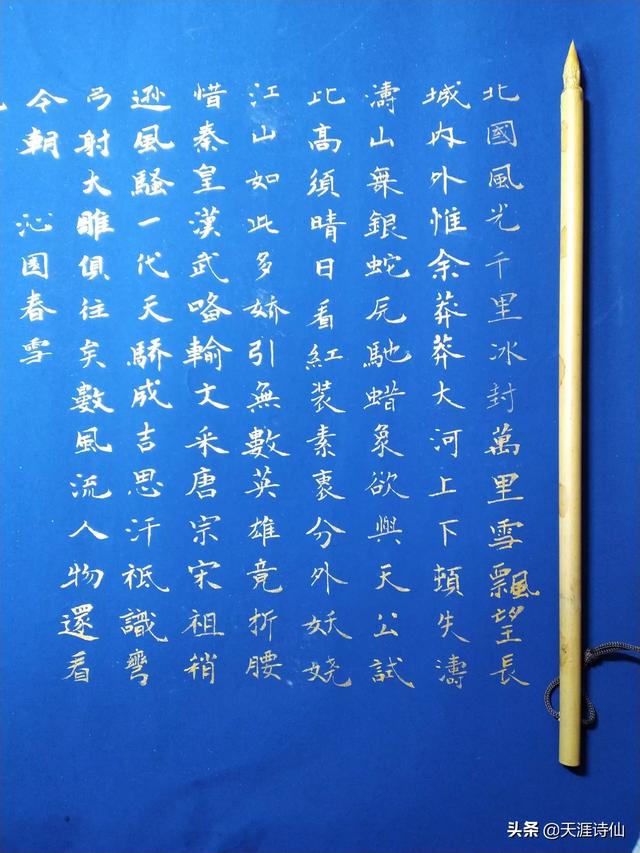 北國風光千里冰封萬里雪飄望長
城内外惟余莽莽大河上下頓失濤
濤山舞銀蛇尻馳蜡象欲與天公試
比高須晴日看紅装素裹分外妖娆
江山如此多娇引無數英雄竟折腰
惜秦皇漢武略輸文采唐宗宋祖稍
遜風騷一代天驕成吉思汗祗識彎
弓射大雕俱往矣數風流人物還看
今朝 沁园春雪
头条 @天涯诗仙